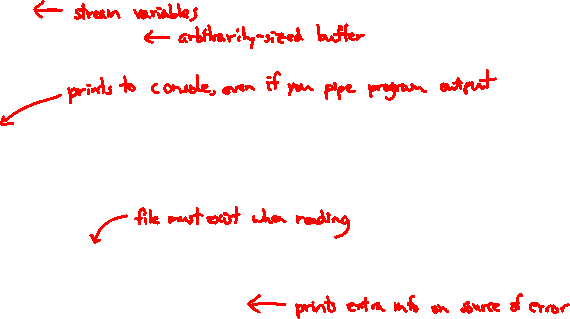 ← stream variables
← arbitrarily-sized buffer
prints to console, even if you pipe program output
file must exist when reading
← prints extra info on source of error